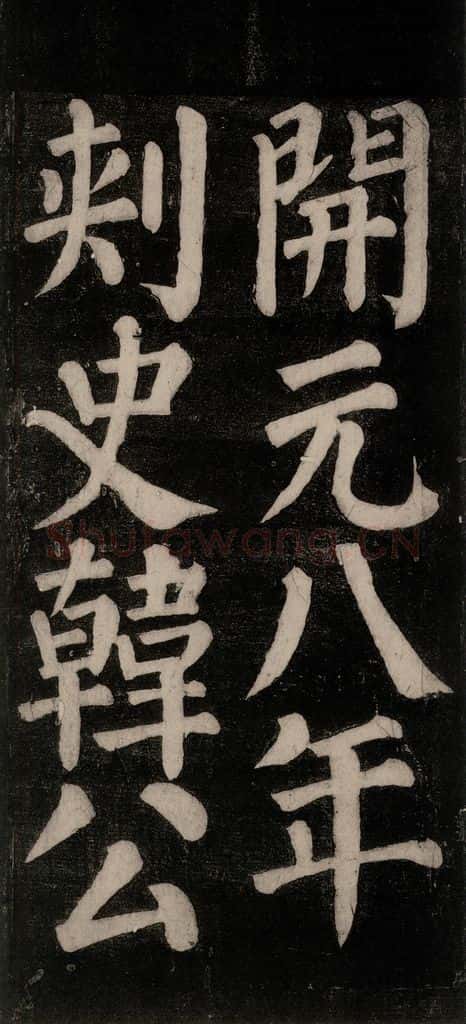 開元八年
刺史韓公
Shufawang.CN